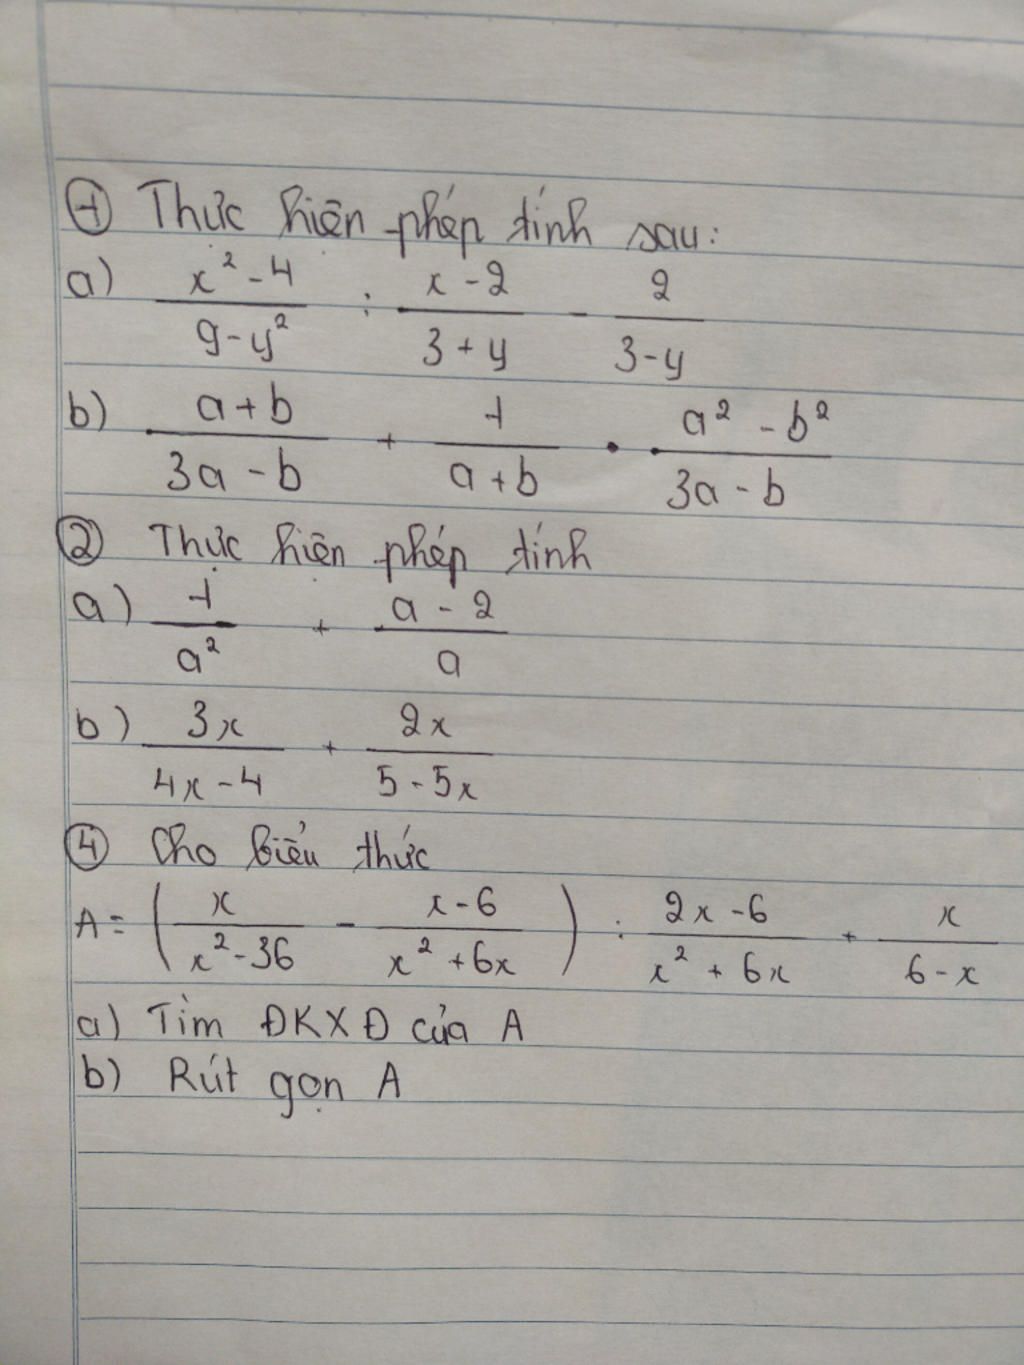 ① Thực hiện phép tính sau:
a) \frac{x^2-4}{9-y^2} : \frac{x-2}{3+y} - \frac{2}{3-y}
b) \frac{a+b}{3a-b} + \frac{1}{a+b} \cdot \frac{a^2-b^2}{3a-b}
② Thực hiện phép tính
a) \frac{1}{a^2} + \frac{a-2}{a}
b) \frac{3x}{4x-4} + \frac{2x}{5-5x}
④ Cho biểu thức
A = \left( \frac{x}{x^2-36} - \frac{x-6}{x^2+6x} \right) : \frac{2x-6}{x^2+6x} + \frac{x}{6-x}
a) Tìm ĐKXĐ của A
b) Rút gọn A